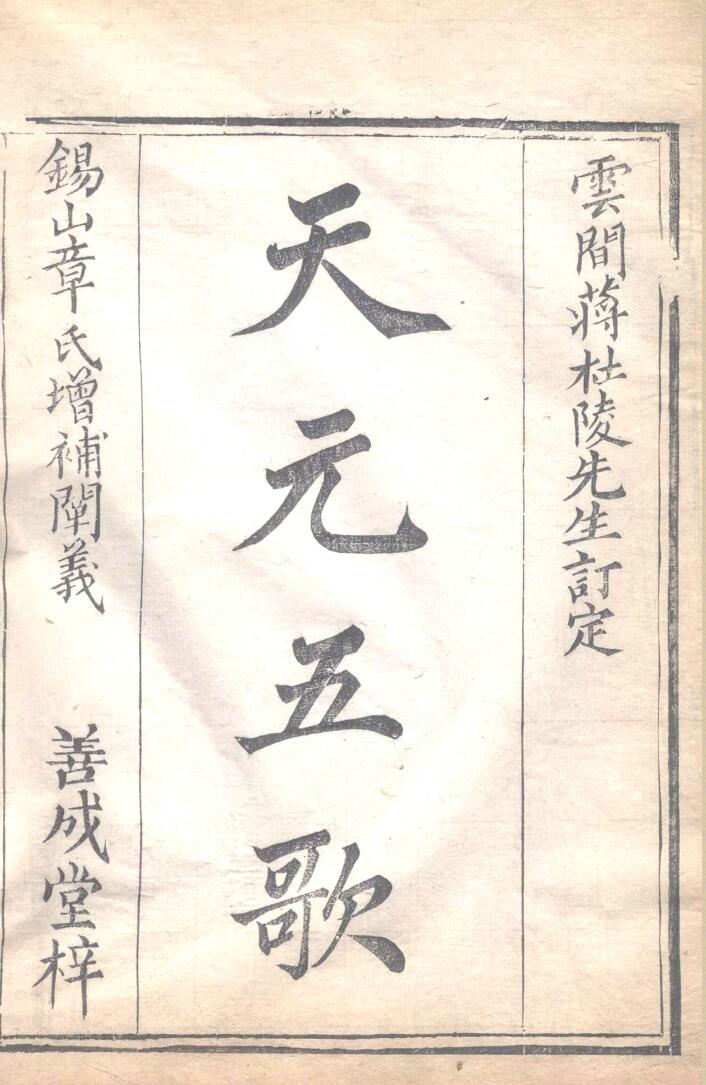 雲間蔣杜陵先生訂定
天元五歌
錫山章氏增補闡義　善成堂梓